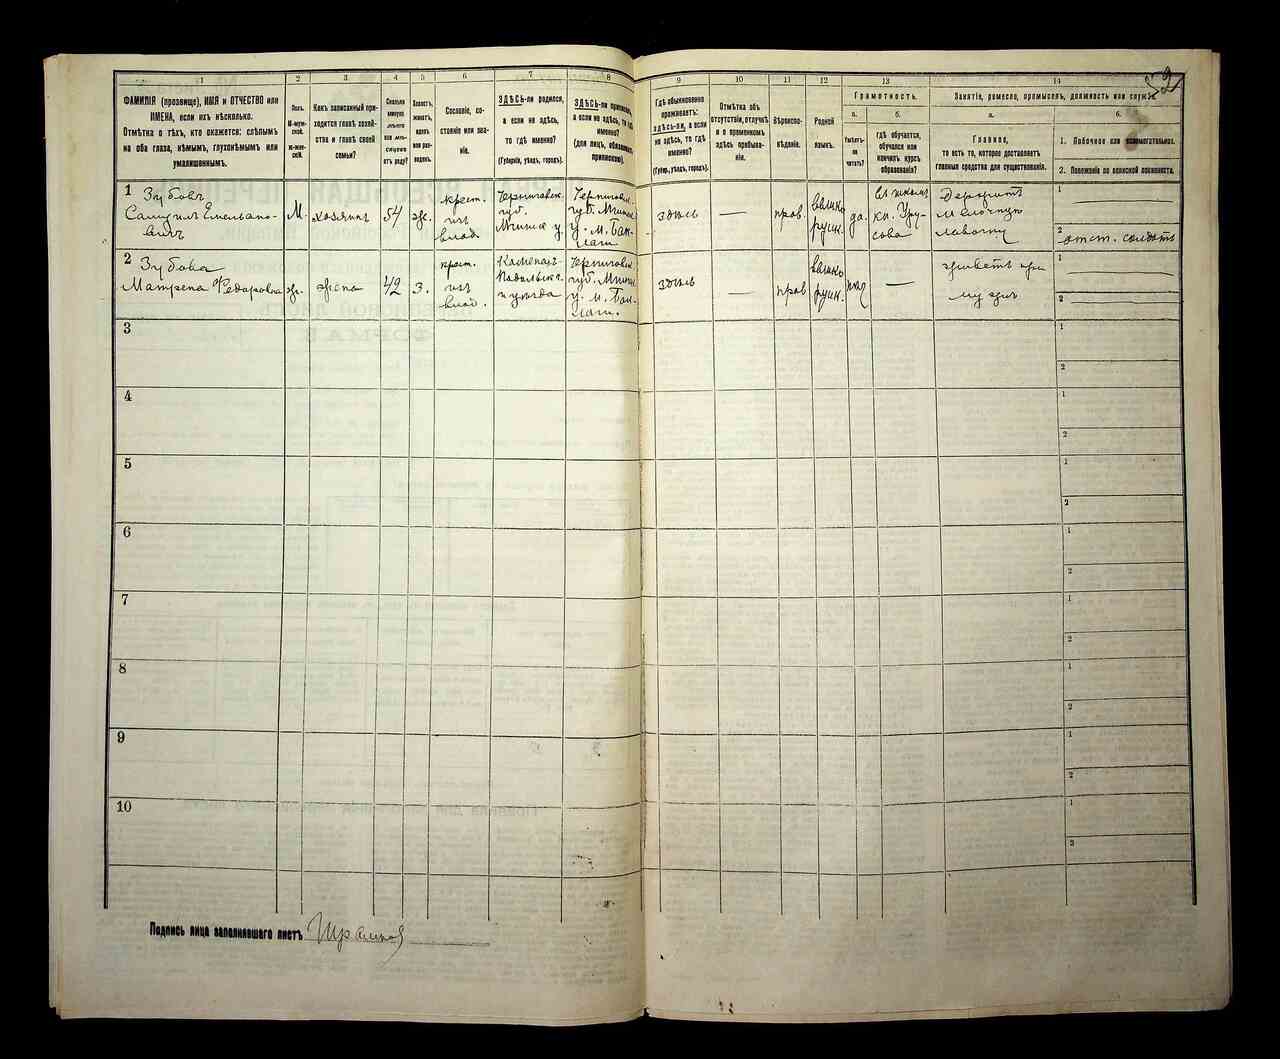 1
2
3
4
5
6
7
8
9
10
11
12
13
14
ФАМИЛІЯ (прозвище), ИМЯ и ОТЧЕСТВО или
ИМЕНА, если ихъ нѣсколько.
Отмѣтка о тѣхъ, кто окажется: слѣпымъ
на оба глаза, нѣмымъ, глухонѣмымъ или
умалишеннымъ.
Полъ.
М-муж-
ской.
Ж-жен-
скій.
Какъ записанный при-
ходится главѣ хозяй-
ства и главѣ своей
семьи?
Сколько
минуло
лѣтъ
или мѣ-
сяцевъ
отъ роду?
Холостъ,
женатъ,
вдовъ
или раз-
веденъ.
Сословіе, со-
стояніе или зва-
ніе.
ЗДѢСЬ-ли родился,
а если не здѣсь,
то гдѣ именно?
(Губернія, уѣздъ, городъ).
ЗДѢСЬ-ли приписанъ,
а если не здѣсь, то гдѣ
именно?
(для лицъ, обязанныхъ
припискою).
Гдѣ обыкновенно
проживаетъ:
здѣсь-ли, а если
не здѣсь, то гдѣ
именно?
(Губер., уѣздъ, городъ).
Отмѣтка объ
отсутствіи, отлучкѣ
и о временномъ
здѣсь пребыва-
ніи.
Вѣроиспо-
вѣданіе.
Родной
языкъ.
Грамотность.
а.
Умѣетъ-
ли
читать?
б.
гдѣ обучается,
обучался или
кончилъ курсъ
образованія?
Занятіе, ремесло, промыселъ, должность или служба
а.
Главное,
то есть то, которое доставляетъ
главныя средства для существованія.
б.
1. Побочное или вспомогательное.
2. Положеніе по воинской повинности.
1
Зубовъ
Самуилъ Емельяно-
вичъ
М.
хозяинъ
54
ж.
крест.
изъ
влад.
Черниговск.
губ.
Мглинск. у.
Черниговск.
губ. Мглин.
у. м. Бак-
лань
здѣсь
—
прав.
велико
русск.
да.
въ школѣ
кн. Уру-
сова
Держитъ
мелочную
лавочку
1
2
отст. солдатъ
2
Зубова
Матрена Федоровна
ж.
жена
42
з.
крест.
изъ
влад.
Каменецъ-
Подольскъ.
уѣзда
Черниговск.
губ. Мглин.
у. м. Бак-
лань.
здѣсь
—
прав
велико
русск.
—
живетъ при
мужѣ
1
2
3
1
2
4
1
2
5
1
2
6
1
2
7
1
2
8
1
2
9
1
2
10
1
2
Подпись лица заполнявшаго листъ